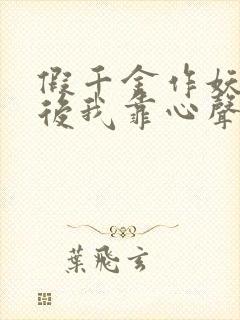 假千金作妖
後我靠心聲
葉飛玄